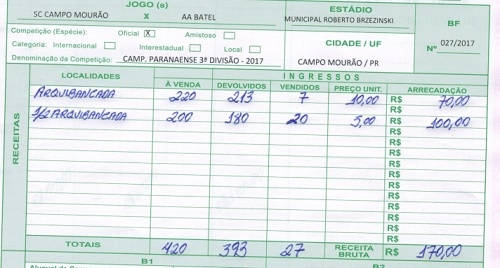 JOGO (s)
SC CAMPO MOURÃO X AA BATEL
ESTÁDIO
MUNICIPAL ROBERTO BRZEZINSKI
BF
Nº 027/2017
Competição (Espécie): Oficial X Amistoso
Categoria: Internacional Interestadual Local
Denominação da Competição: CAMP. PARANAENSE 3ª DIVISÃO - 2017
CIDADE / UF
CAMPO MOURÃO / PR
RECEITAS
LOCALIDADES
INGRESSOS
À VENDA DEVOLVIDOS VENDIDOS PREÇO UNIT. ARRECADAÇÃO
ARQUIBANCADA 220 213 7 10,00 R$ 70,00
1/2 ARQUIBANCADA 200 180 20 5,00 R$ 100,00
R$
R$
R$
R$
R$
R$
R$
R$
R$
TOTAIS 420 393 27 RECEITA BRUTA R$ 170,00
B1 B2